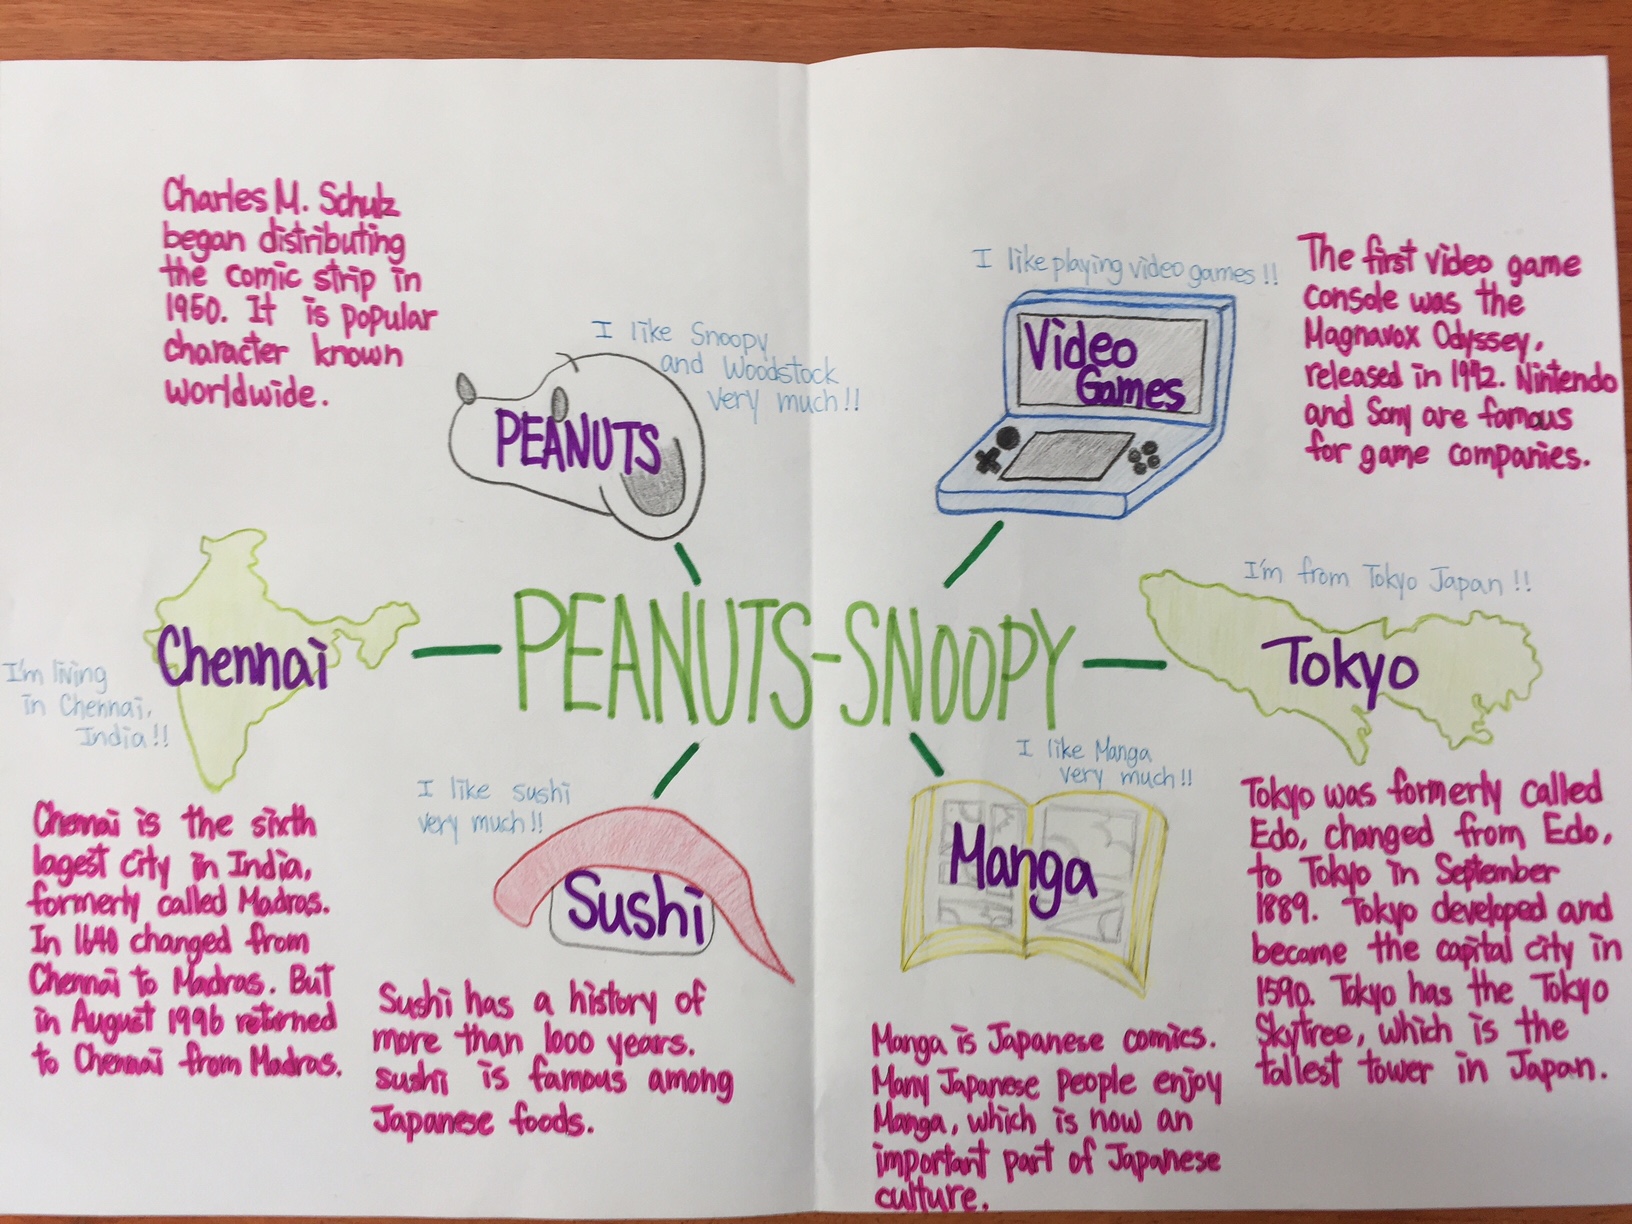 Charles M. Schulz
began distributing
the comic strip in
1950. It is popular
character known
worldwide.
I like Snoopy
and Woodstock
very much!!
PEANUTS
I like playing video games!!
Video
Games
The first video game
console was the
Magnavox Odyssey,
released in 1972. Nintendo
and Sony are famous
for game companies.
PEANUTS-SNOOPY
Chennai
I'm living
in Chennai,
India!!
Chennai is the sixth
lagest city in India,
formerly called Madras.
In 1640 changed from
Chennai to Madras. But
in August 1996 returned
to Chennai from Madras.
I like sushi
very much!!
Sushi
Sushi has a history of
more than 1000 years.
sushi is famous among
Japanese foods.
I like Manga
very much!!
Manga
Manga is Japanese comics.
Many Japanese people enjoy
Manga, which is now an
important part of Japanese
culture.
I'm from Tokyo Japan!!
Tokyo
Tokyo was formerly called
Edo, changed from Edo,
to Tokyo in September
1889. Tokyo developed and
became the capital city in
1590. Tokyo has the Tokyo
Skytree, which is the
tallest tower in Japan.